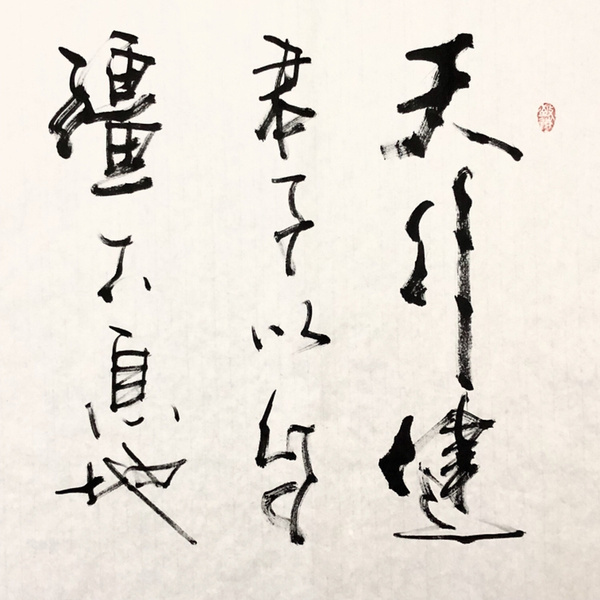 天行健
君子以自
彊不息地